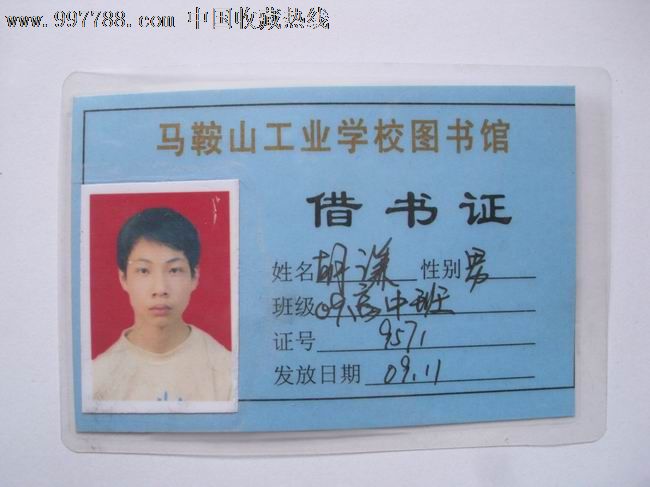 www.997788.com 中国收藏热线
马鞍山工业学校图书馆
借书证
姓名 胡谦 性别 男
班级 09高中班
证号 9571
发放日期 09.11